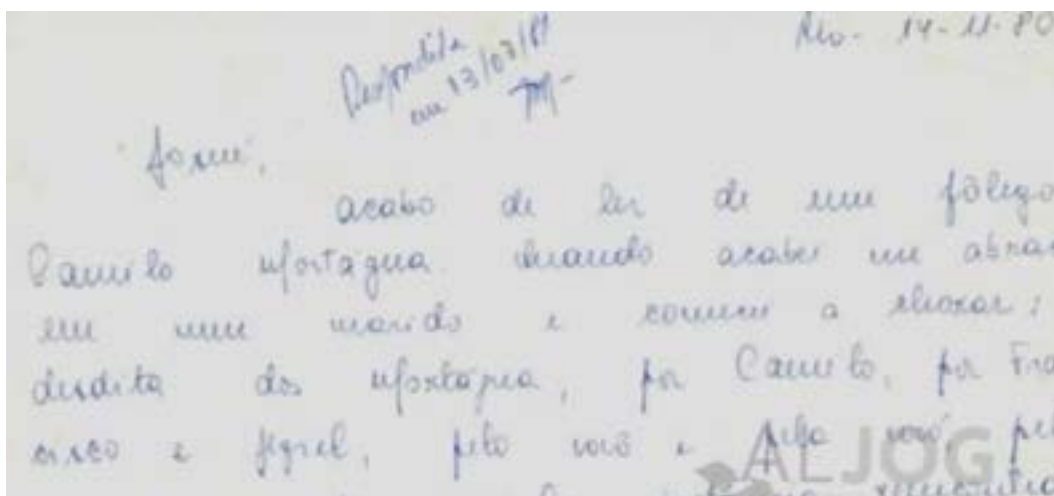 Rio - 14-11-80
Respondida
em 13/03/81
Josué,
acabo de ler de um fôlego
Camilo Mortágua. Quando acabei me abrac
em meu marido e comecei a chorar:
desdita dos Mortágua, por Camilo, por Fran
cisco e pelo vovô e pela vovó pel
ALJOG